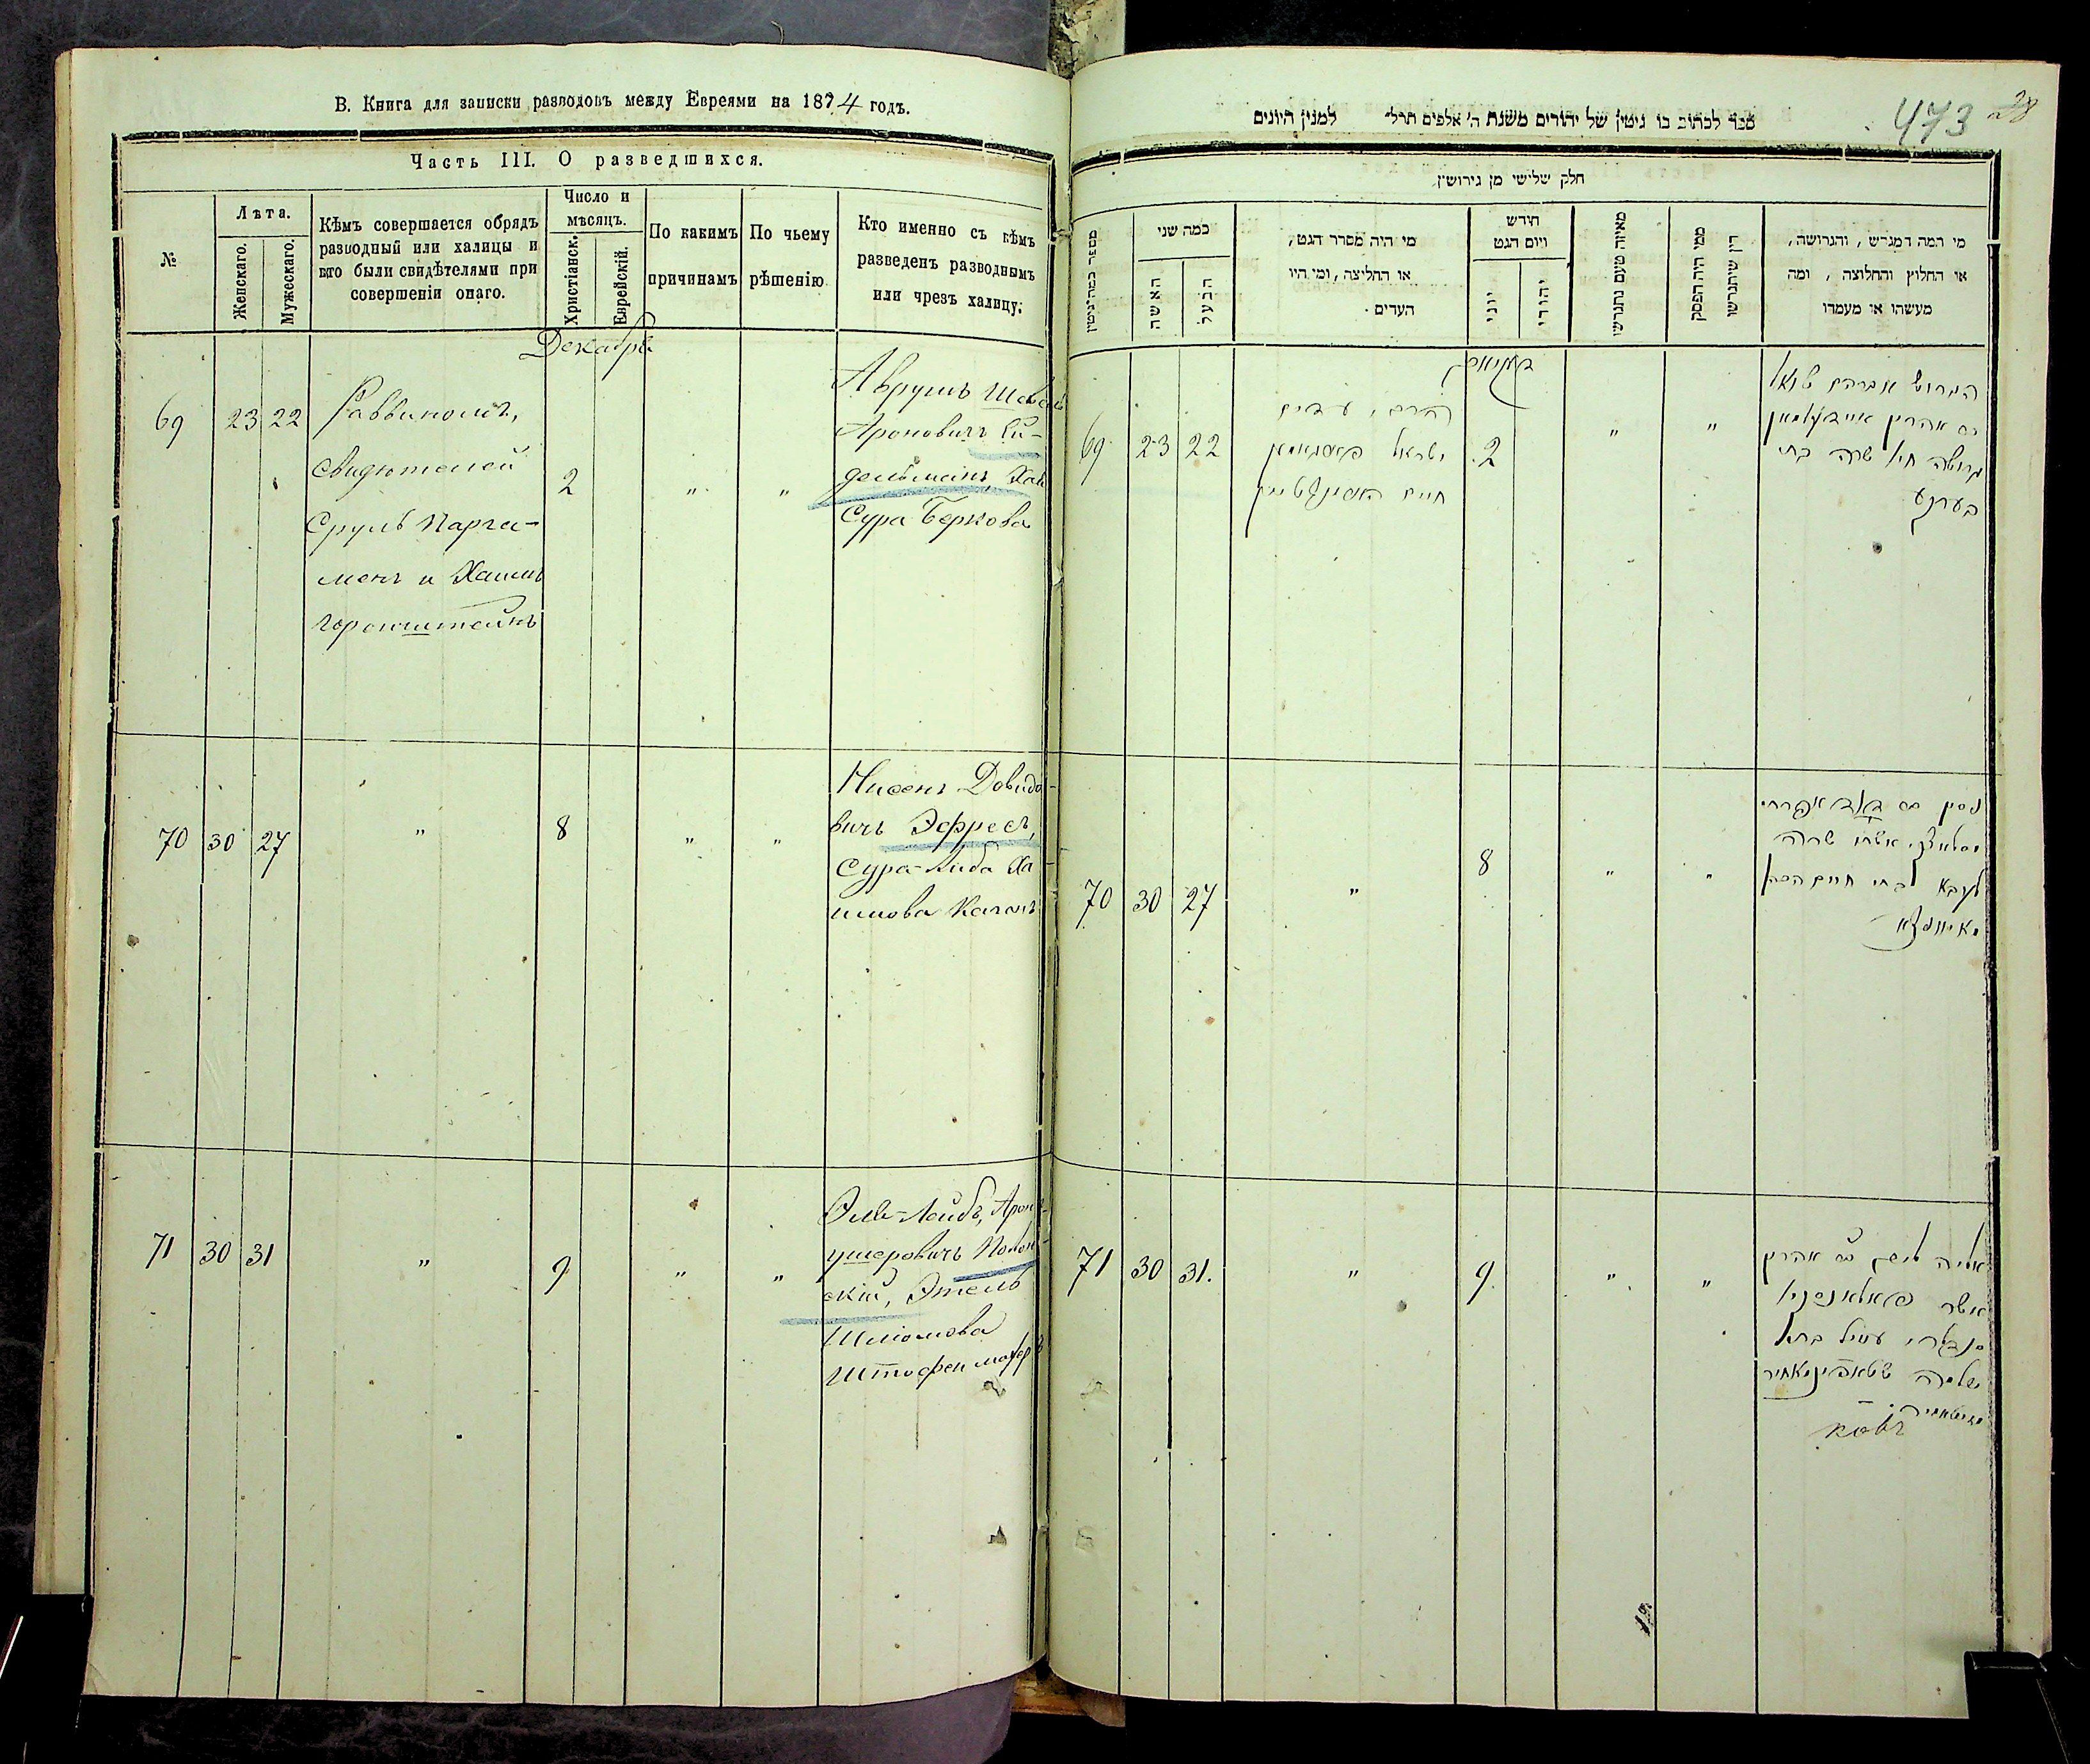 В. Книга для записки разводовъ между Евреями на 1874 годъ.
Часть III. О разведшихся.
№
Лѣта.
Женскаго.
Мужескаго.
Кѣмъ совершается обрядъ
разводный или халицы и
кто были свидѣтелями при
совершеніи онаго.
Число и
мѣсяцъ.
Христіанск.
Еврейскій.
По какимъ
причинамъ
По чьему
рѣшенію
Кто именно съ кѣмъ
разведенъ разводнымъ
или чрезъ халицу:
Декабрь
69 23 22
Раввиномъ,
свидѣтелей
Сруль Парга-
менъ и Хаимъ
Горенштейнъ
2
"
"
Аврумъ
Ароновичъ Ей-
дельманъ,
Сура Беркова
70 30 27
"
8
"
"
Нисенъ Довидо-
вичъ Эфресъ,
Сура-Либа Ха
имова Каганъ
71 30 31
"
9
"
"
Эле-Лейбъ, Арон
ушеровичъ Полон
скій, Этель
Шліомова
473
28
ספר לכתוב בו גיטין של יהודים משנת ה' אלפים תרל" למנין היונים
חלק שלישי מן גירושין
מספר כמה גיטין
כמה שני
האשה
הבעל
מי היה מסדר הגט,
או החליצה, ומי היו
העדים.
חודש
ויום הגט
יוני
יהודי
מאיזה טעם נתגרשו
ממי היה הפסק
דין שיתגרשו
מי המה המגרש, והגרושה,
או החלוץ והחלוצה, ומה
מעשהו או מעמדו
69 23 22
הרב, עדים
ישראל
חיים
2
"
"
הגרוש אברהם
בן אהרן איידעלמאן
גרושה חי' שרה בת
בערקע
70 30 27
"
8
"
"
ניסן בן דוד
שרה
71 30 31.
"
9
"
"
אליה ליב בן אהרן
אשר